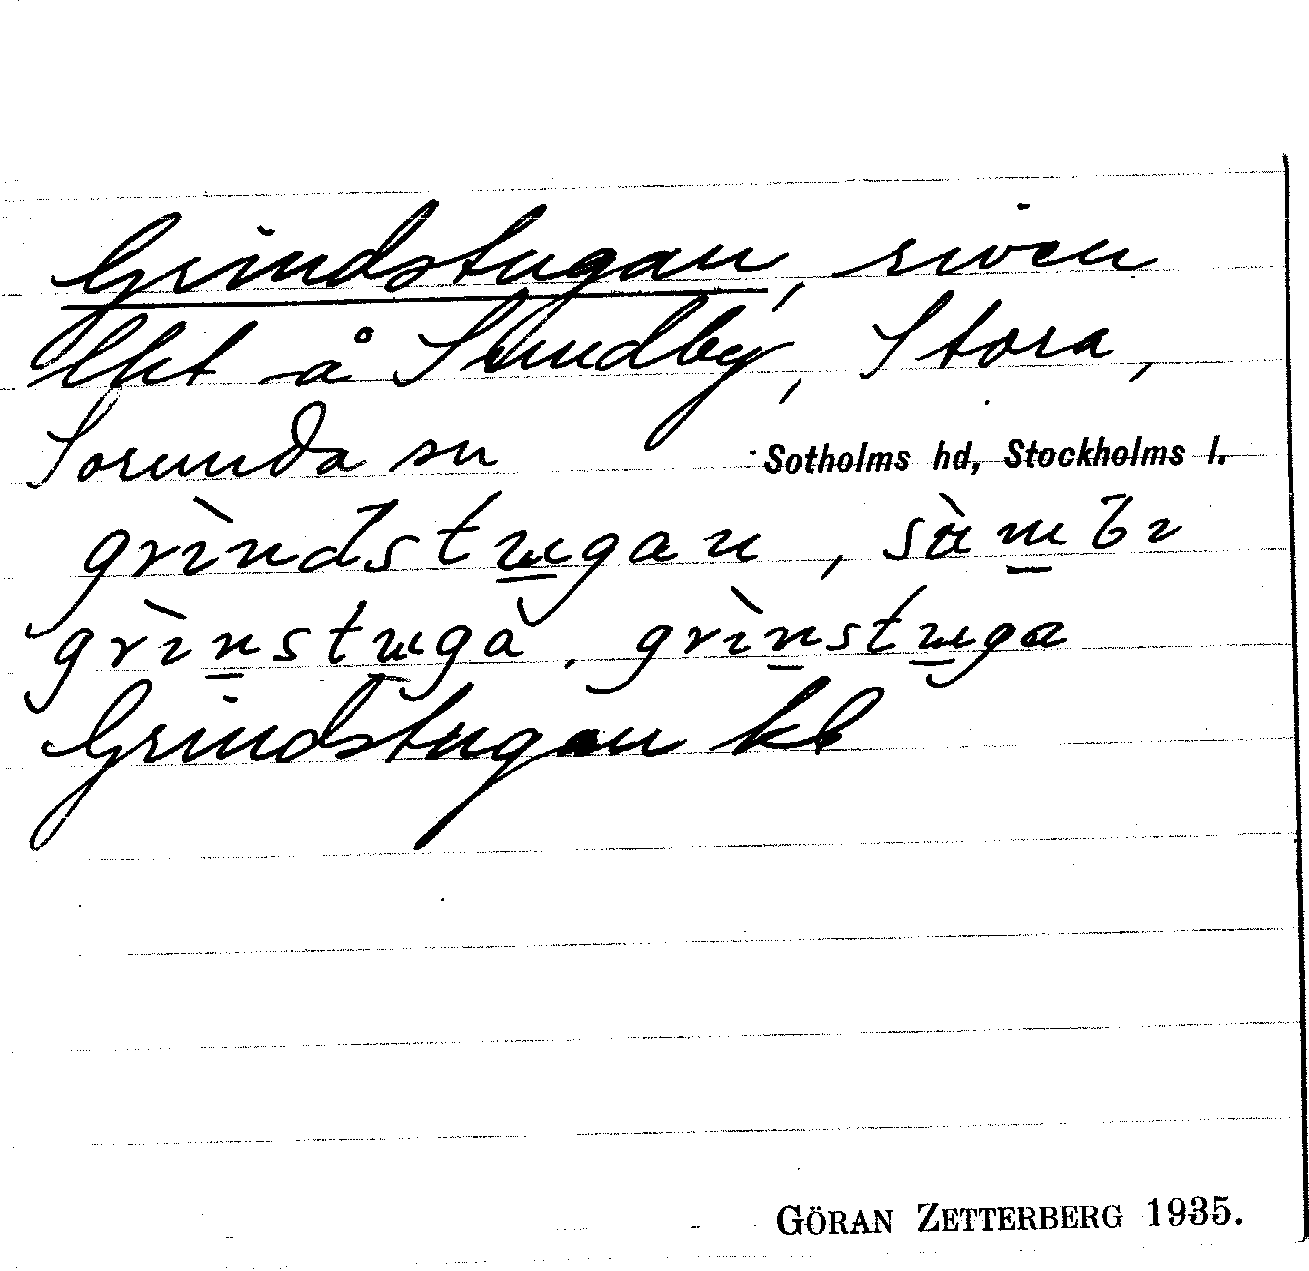 Grindstugan, riven
lht å Sundby, Stora,
Sorunda sn Sotholms hd, Stockholms l.
grìndstugan, sùmbı
grìnstugà, grìnstuga
Grindstugan kb
GÖRAN ZETTERBERG 1935.